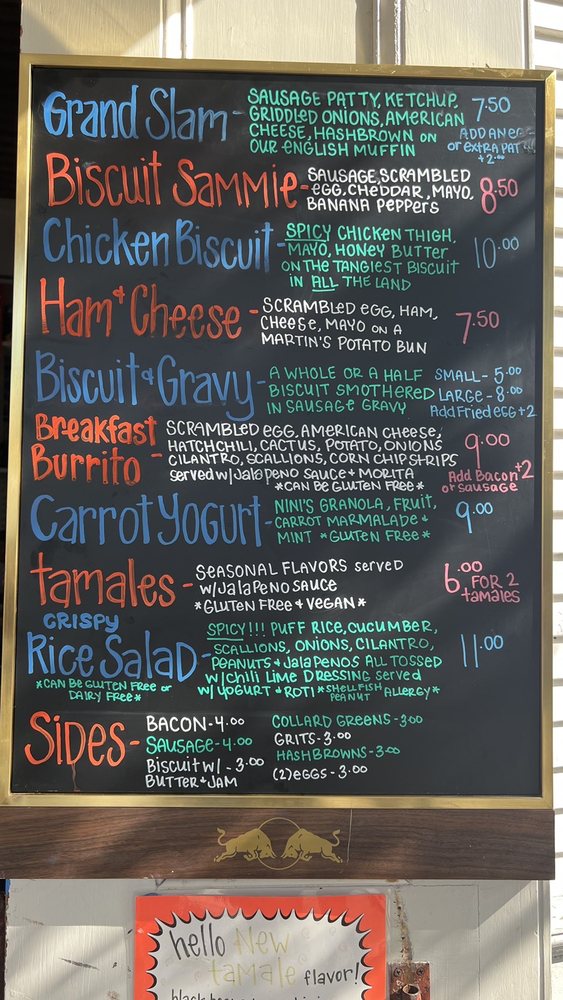 Grand Slam - SAUSAGE PATTY, KETCHUP, 7.50
GRIDDLED ONIONS, AMERICAN
CHEESE, HASHBROWN ON
OUR ENGLISH MUFFIN
ADD AN EGG
or EXTRA PAT
+2.00
Biscuit Sammie - SAUSAGE, SCRAMBLED 8.50
egg. CHeDDAR, MAYO,
BANANA PePPeRS
Chicken Biscuit - SPICY CHICKEN THIGH, 10.00
MAYO, HONEY BUTTER
ON THE TANGIEST BISCUIT
IN ALL THE LAND
Ham & Cheese - SCRAMBLED egg, HAM, 7.50
CHeeSe, MAYO ON A
MARTIN'S POTATO BUN
Biscuit & Gravy - A WHOLE OR A HALF
BISCUIT SMOTHERED
IN SAUSAGE GRAVY
SMALL - 5.00
LARGE - 8.00
Add Fried egg +2
Breakfast
Burrito - SCRAMBLED EGG, AMERICAN CHEESE, 9.00
HATCH CHILI, CACTUS, POTATO, ONIONS
CILANTRO, SCALLIONS, CORN CHIP STRIPS
served w/ JalaPeNO SAUCE & MORITA
*CAN BE GLUTEN FREE*
Add Bacon +2
or sausage
Carrot Yogurt - NINI'S GRANOLA, FRUIT, 9.00
CARROT MARMALADE &
MINT *GLUTEN FREE*
tamales - SeASONAL FLAVORS serveD
w/ JALAPeNO SAUCE
*GLUTEN FREE & VEGAN*
6.00 FOR 2
tamales
CRISPY
Rice Salad - SPICY!!! PUFF RICE, CUCUMBER, 11.00
SCALLIONS, ONIONS, CILANTRO,
PEANUTS & JalaPENOS ALL TOSSED
w/ CHILI LIME DRESSING Served
w/ YOGURT & ROTI *SHELLFISH PEANUT ALLERGY*
*CAN BE GLUTEN FREE or
DAIRY FREE*
Sides - BACON - 4.00
SAUSAGE - 4.00
BISCUIT w/ - 3.00
BUTTER & JAM
COLLARD GREENS - 3.00
GRITS - 3.00
HASHBROWNS - 3.00
(2) eggS - 3.00
hello New
tamale flavor!